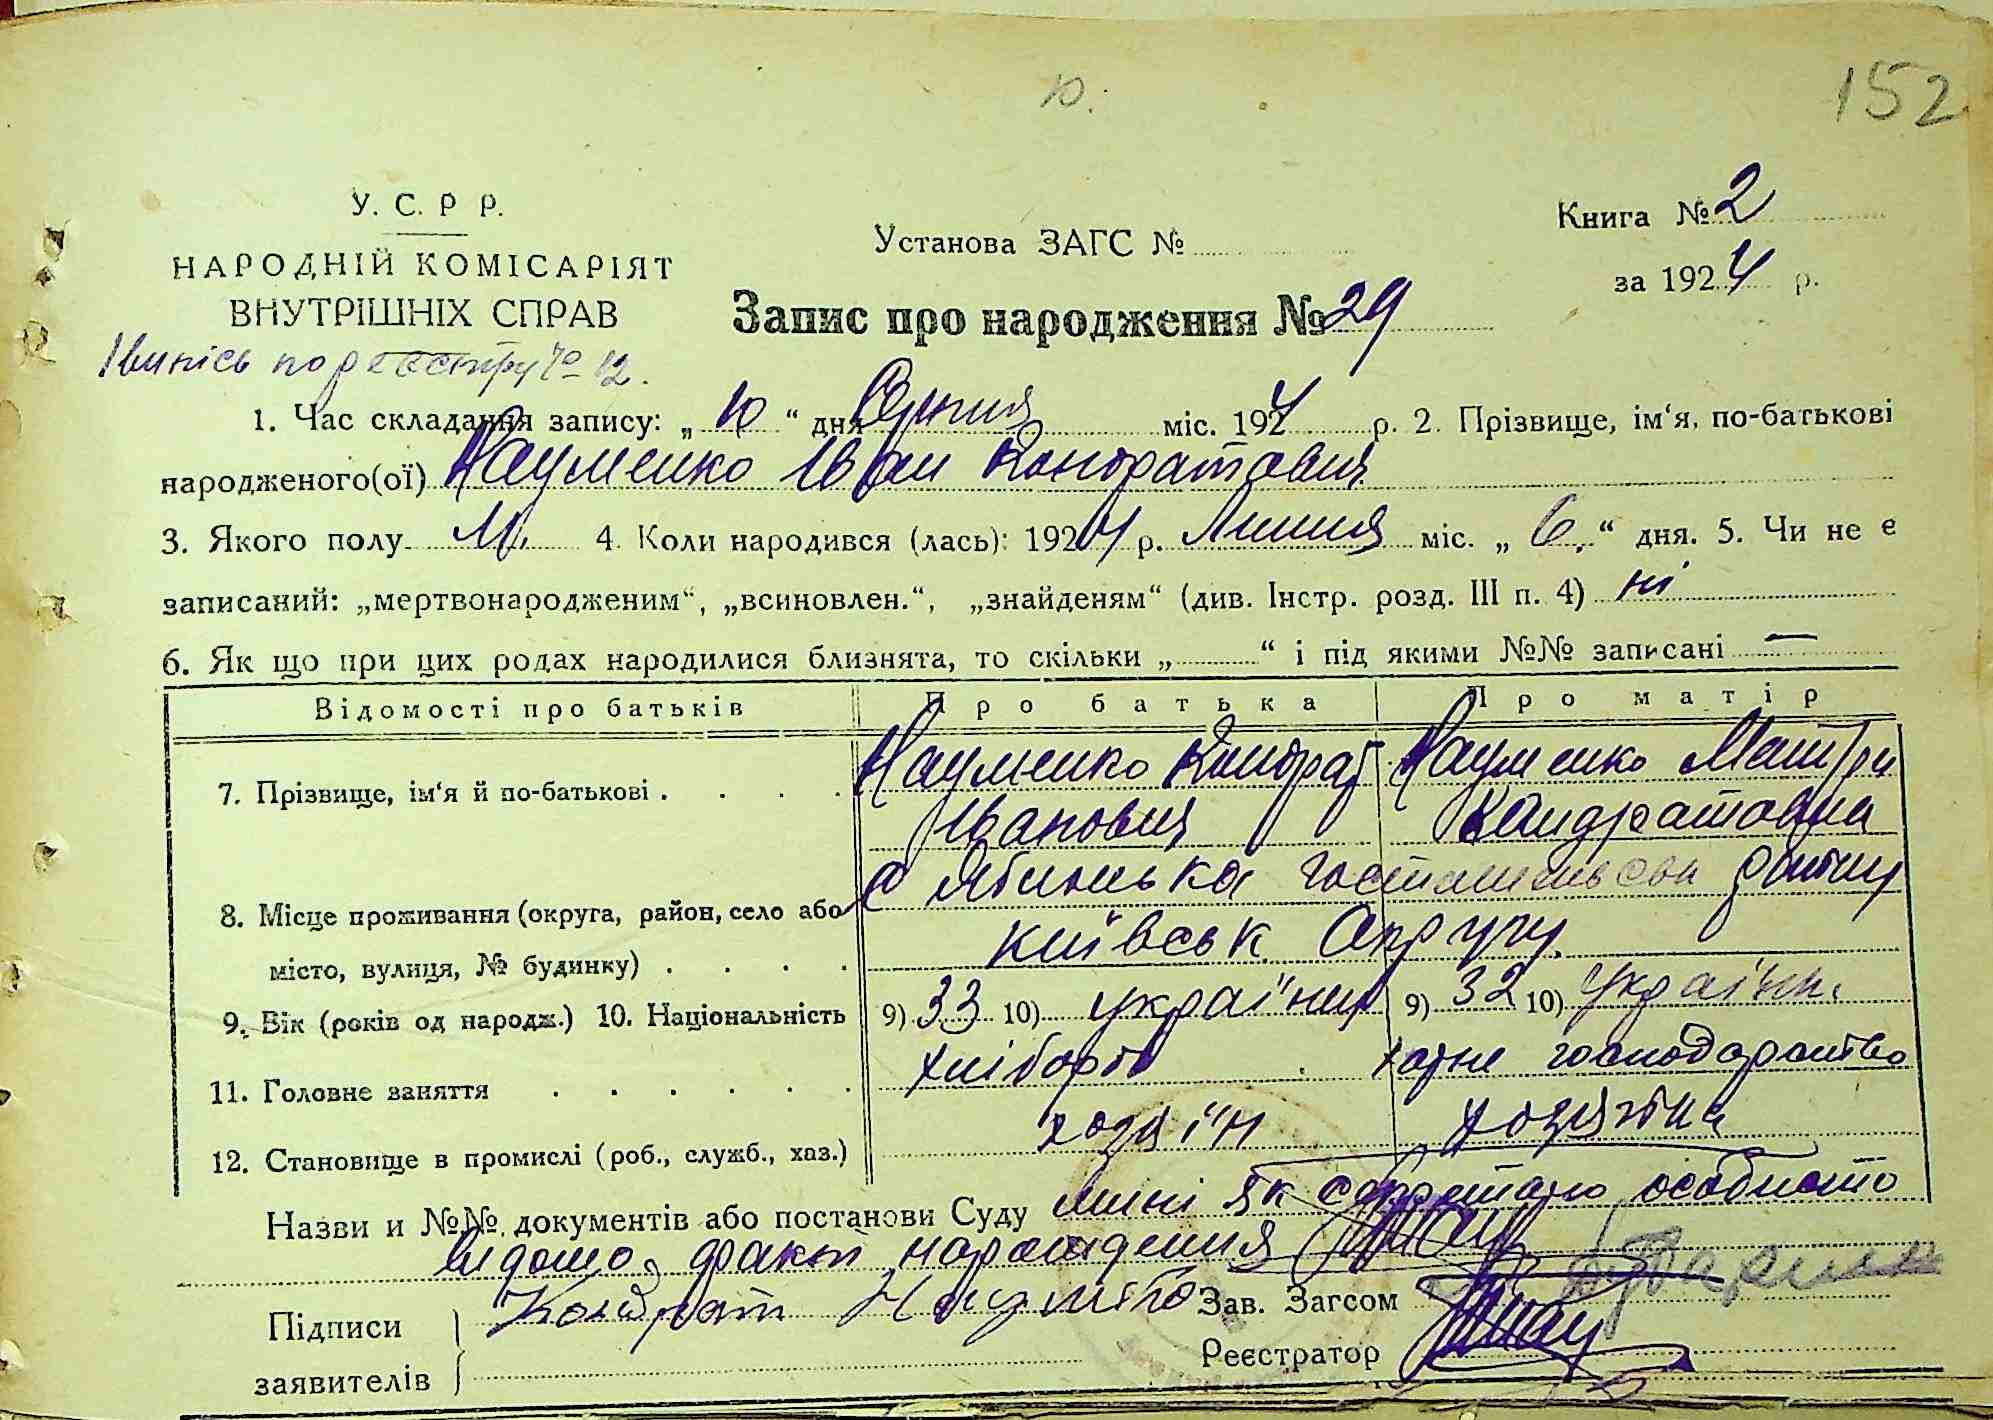 152
10.
У. С. Р Р.
НАРОДНІЙ КОМІСАРІЯТ
ВНУТРІШНІХ СПРАВ
Установа ЗАГС №
Книга № 2
за 1924 р.
Запис про народження № 29
по реестру № 12.
1. Час складання запису: „ 10 “ дня Серпня міс. 1924 р. 2. Прізвище, ім‘я, по-батькові
народженого(ої) Науменко Іван Кондратович
3. Якого полу М. 4. Коли народився (лась): 1924 р. Липня міс. „ 6. “ дня. 5. Чи не є
записаний: „мертвонародженим“, „всиновлен.“, „знайденям“ (див. Інстр. розд. III п. 4) ні
6. Як що при цих родах народилися близнята, то скільки „ “ і під якими №№ записані —
Відомості про батьків Про батька Про матір
7. Прізвище, ім‘я й по-батькові . . . . Науменко Кондрат Науменко
Іванович Кондратовна
8. Місце проживання (округа, район, село або с
місто, вулиця, № будинку) . . . . київськ Округу
9. Вік (років од народж.) 10. Національність 9) 33 10) україниц 9) 32 10) україн.
11. Головне заняття . . . . . . хлібороб хатне господарство
12. Становище в промислі (роб., служб., хаз.) хозяїн хозяйка
Назви и №№. документів або постанови Суду мині як секретарю особисто
відомо факт народження
Підписи
заявителів
Кондрат Науменко
Зав. Загсом
Реєстратор